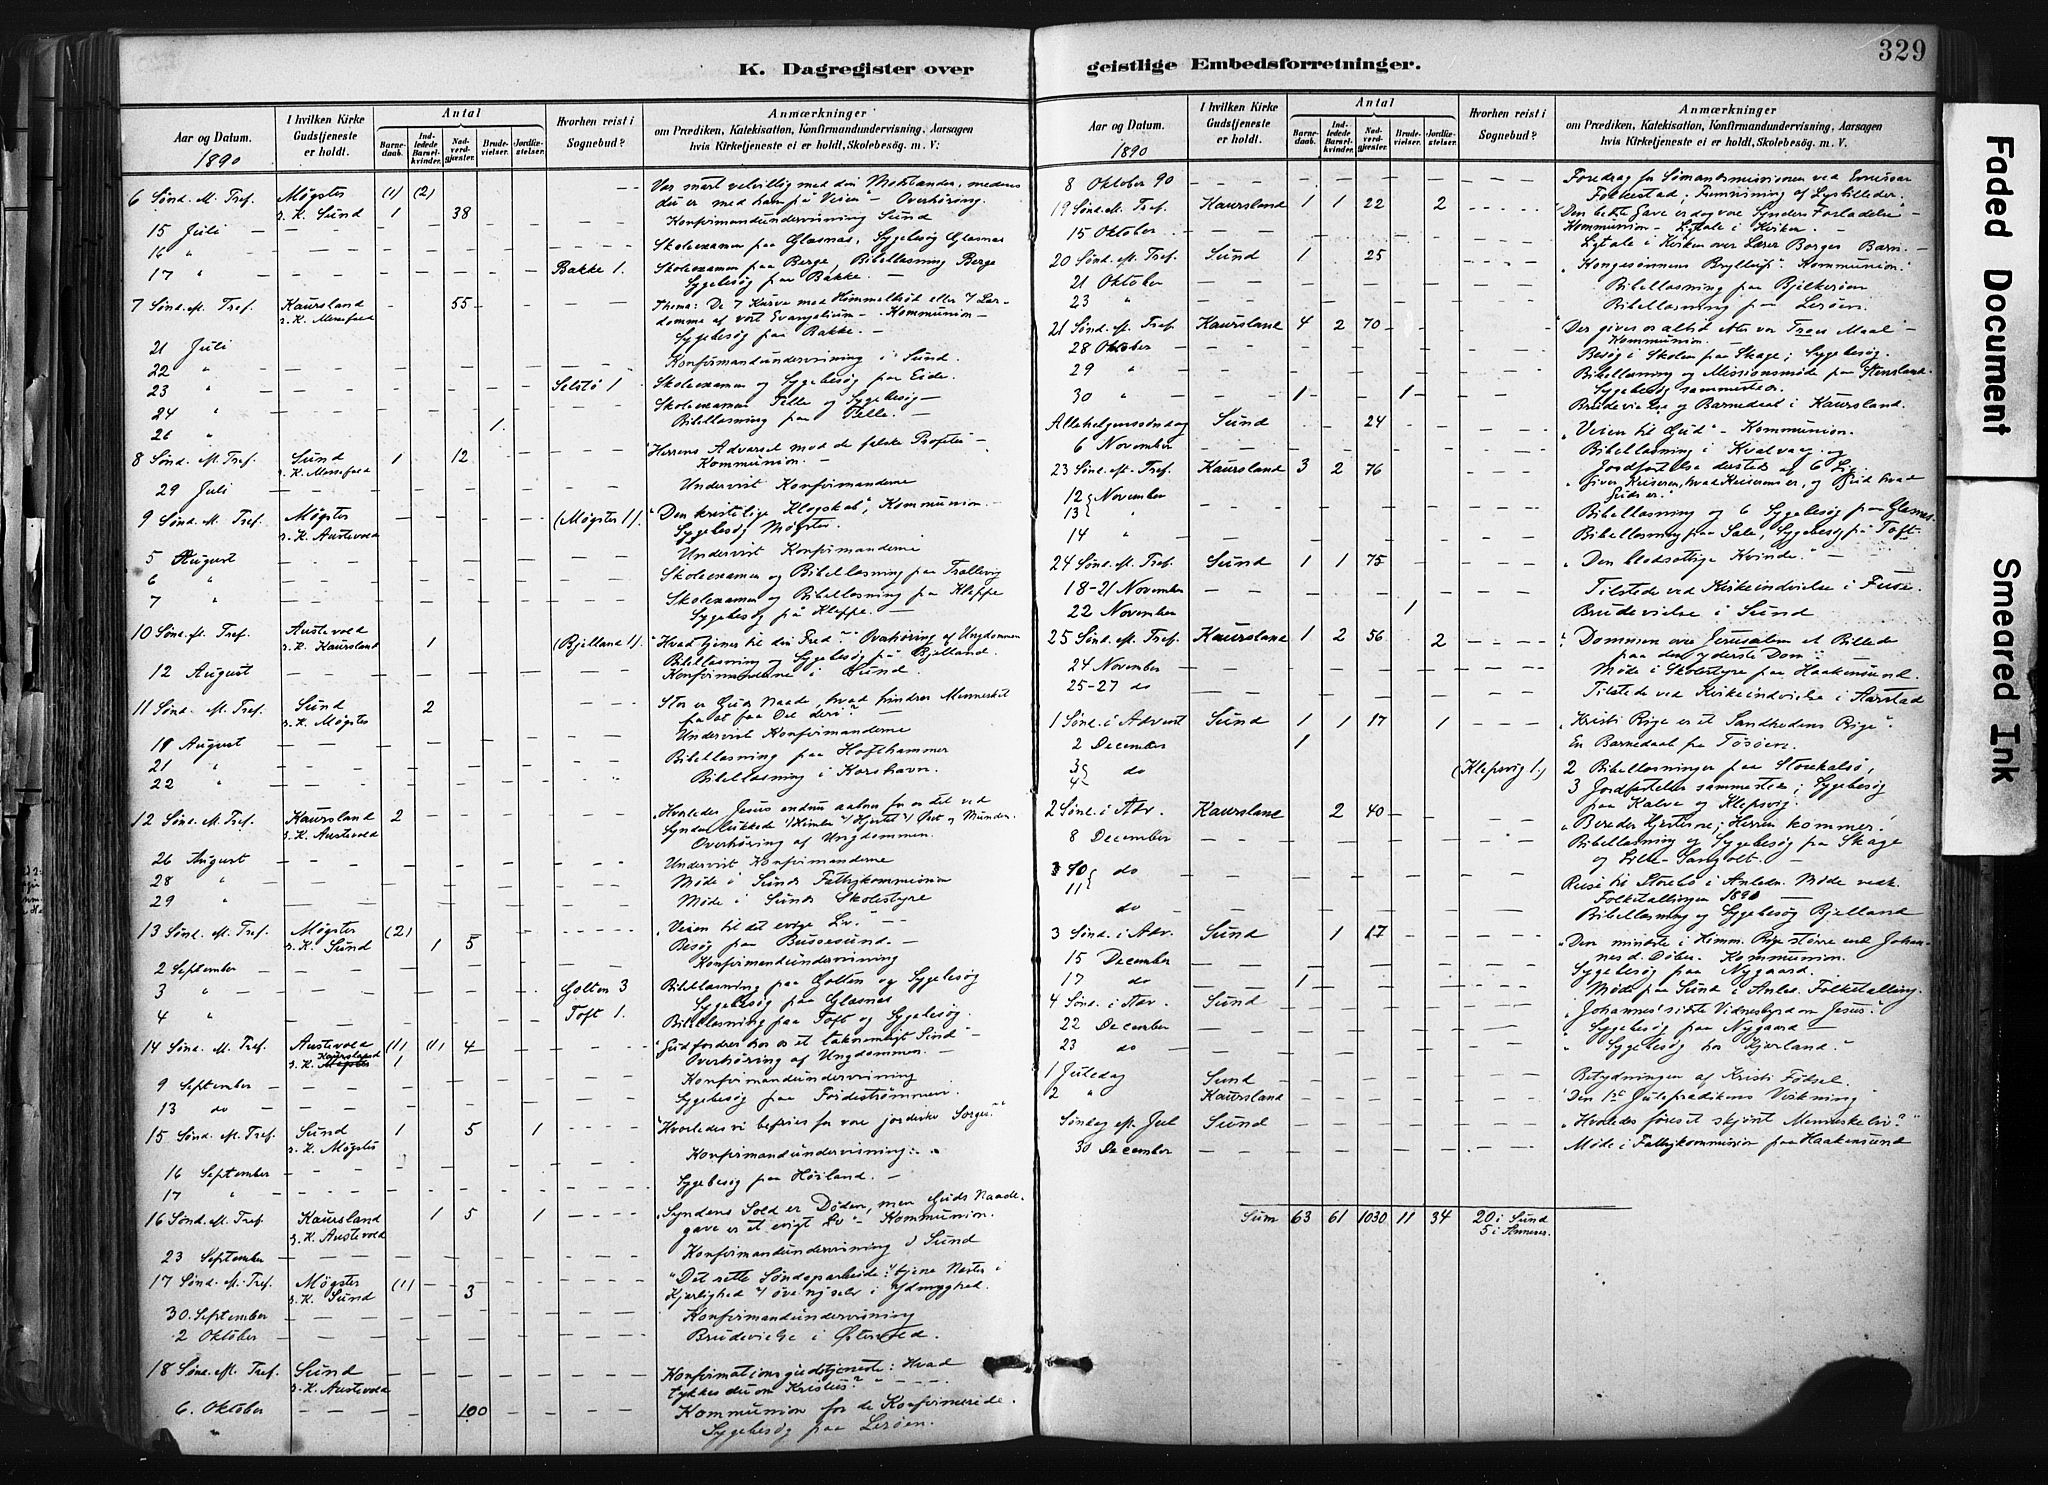 K. Dagregister over
Aar og Datum.
1890
I hvilken Kirke
Gudstjeneste
er holdt.
Antal
Barne-
daab.
Ind-
ledede
Barsel-
kvinder.
Nad-
verd-
gjæster.
Brude-
vielser.
Jordfæ-
stelser.
Hvorhen reist i
Sognebud?
Anmærkninger
om Prædiken, Katekisation, Konfirmandundervisning, Aarsagen
hvis Kirketjeneste ei er holdt, Skolebesøg. m. V.
6 Sønd. e. Tref. Møgster (1) (2)
r. K. Sund 1 38 er med ham på Veien" – Overhøring.
15 Juli Konfirmandundervisning Sund
16 " Skoleexamen paa Glæsnæs, Sygebesøg Glæsnæs
17 " Bakke 1. Skoleexamen paa Berge, Bibellæsning Berge
Sygebesøg paa Bakke.
7 Sønd. e. Tref. Kaursland 55
domme af vort Evangelium – Kommunion –
21 Juli Sygebesøg paa Bakke. –
22 " Konfirmandundervisning i Sund.
23 " Selstø 1. Skoleexamen og Sygebesøg paa Eide.
24 " Skoleexamen Telle og Sygebesøg –
26 " 1. Bibellæsning paa Telle. –
8 Sønd. e. Tref. Sund 1 12 Herrens Advarsel mod de falske Profeter –
Kommunion. –
29 Juli Undervist Konfirmanderne
9 Sønd. e. Tref. Møgster (Møgster 1). "Den kristelige Klogskab", Kommunion –
r. K. Austevold Sygebesøg Møgster.
5 August Undervist Konfirmanderne
6 " Skoleexamen og Bibellæsning paa Trællevig
7 " Skolexamen og Bibellæsning på Kleppe
Sygebesøg på Kleppe. –
10 Sønd. e. Tref. Austevold 1 (Bjelland 1). "Hvad tjener til din Fred?" Overhøring af Ungdommen
r. K. Kaursland Bibellæsning og Sygebesøg på Bjelland.
12 August Konfirmanderne i Sund.
11 Sønd. e. Tref. Sund 2 Stor er Guds Naade, hvad hindrer Mennesket
r. K. Møgster fra at faa Del deri? –
19 August Undervist Konfirmanderne
21 " Bibellæsning paa Hofthammer
22 " Bibellæsning i Korshavn.
12 Sønd. e. Tref. Kaursland 2
r. K. Austevold Overhøring af Ungdommen.
26 August Undervist Konfirmanderne
28 " Møde i Sunds Fattigkommission
29 " Møde i Sunds Skolestyre
13 Sønd. e. Tref. Møgster (2) "Veien til det evige Liv." –
r. K. Sund 1 5 Besøg paa Bussesund. –
2 September Konfirmandundervisning
3 " Golten 3 Bibellæsning paa Golten og Sygebesøg
Sygebesøg paa Glæsnæs
4 " Toft 1. Bibellæsning paa Toft og Sygebesøg.
14 Sønd. e. Tref. Austevold (1) (1) 4 "Gud fordrer hos os et taknemligt Sind" –
r. K. Kaursland 1 Overhøring af Ungdommen. –
9 September Konfirmandundervisning
13 do Sygebesøg paa Førdestrømmen.
15 Sønd. e. Tref. Sund 1 5 1 "Hvorledes vi befries for vore jordiske Sorger."
r. K. Møgster
16 September Konfirmandundervisning
17 " Sygebesøg paa Høiland. –
16 Sønd. e. Tref. Kaursland 1 5 1 "Syndens Sold er Døden, men Guds Naade-
r. K. Austevold gave er et evigt Liv" – Kommunion.
23 September Konfirmandundervisning i Sund
17 Sønd. e. Tref. Møgster (1) "Det rette Søndagsarbeide: tjene Næsten i
r. K. Sund 3 Kjærlighed øve sig selv i Ydmyghed.
30. September Konfirmandundervisning
2 Oktober Brudevielse i Østervold.
18 Sønd. e. Tref. Sund Konfirmationsgudstjeneste: Hvad
r. K. Austevold tykkes du om Kristus?"
6. Oktober 100 Kommunion for de Konfirmerede.
Sygebesøg paa Lerøen.
geistlige Embedsforretninger.
329
Aar og Datum.
1890
I hvilken Kirke
Gudstjeneste
er holdt.
Antal
Barne-
daab.
Ind-
ledede
Barsel-
kvinder.
Nad-
verd-
gjæster.
Brude-
vielser.
Jordfæ-
stelser.
Hvorhen reist i
Sognebud?
Anmærkninger
om Prædiken, Katekisation, Konfirmandundervisning, Aarsagen
hvis Kirketjeneste ei er holdt, Skolebesøg. m. V.
8 Oktober 90 Foredrag for Sømandsmissionen ved Emissær
Folkestad; Fremvisning af Lysbilleder.
19 Sønd. e. Tref. Kaursland 1 1 22 2 "Den bedste Gave er dog vore Synders Forladelse" –
Kommunion – Ligtale i Kirken. –
15 Oktober Ligtale i Kirken over Lærer Borges Barn. –
20 Sønd. e. Tref. Sund 1 25 "Kongesønnens Bryllup". Kommunion.
21 Oktober Bibellæsning paa Bjelkerøen
23 " Bibellæsning paa Lerøen.
21 Sønd. e. Tref. Kaursland 4 2 70 "Der gives os altid efter vor Troes Maal" –
Kommunion. –
28 Oktober Besøg i Skolen paa Skage; Sygebesøg.
29 " Bibellæsning og Missionsmøde paa Stensland.
Sygebesøg sammesteds.
30 " 1 1 Brudevielse og Barnedaab i Kaursland.
Allehelgenssøndag Sund 24 "Veien til Gud" – Kommunion.
6 November Bibellæsning i Kvalvaag og
Jordfæstelse dersteds af 6 Lig.
23 Sønd. e. Tref. Kaursland 3 2 76 "Giver Keiseren, hvad Keiserens er, og Gud hvad
Guds er."
12 November
13 " Bibellæsning og 6 Sygebesøg paa Glæsnæs.
14 " Bibellæsning paa Sale, Sygebesøg på Toft.
24 Sønd. e. Tref. Sund 1 1 75 "Den blodsottige Kvinde." –
18–21 November Tilstede ved Kirkeindvielse i Fuse.
22 November 1 Brudevielse i Sund
25 Sønd. e. Tref. Kaursland 1 2 56 2 "Dommen over Jerusalem et Billede
paa den yderste Dom". –
24 November Møde i Skolestyre paa Haakensund.
25–27 do Tilstede ved Kirkeindvielse i Aarstad
1 Sønd. i Advent Sund 1 1 17 1 "Kristi Rige er et Sandhedens Rige".
2 December 1 En Barnedaab fra Tøsøen.
3 do (Klepsvig 1.) 2 Bibellæsninger paa Storekalsø,
4 3 Jordfæstelser sammesteds; Sygebesøg
paa Kalve og Klepsvig.
2 Sønd. i Adv. Kaursland 2 40 "Bereder Hjerterne; Herren kommer!
8 December Bibellæsning og Sygebesøg paa Skage
og Lille-Sangolt. –
10 do Reise til Storebø i Anledn. Møde vedk.
11 Folketællingen 1890 –
do Bibellæsning og Sygebesøg Bjelland
3 Sønd. i Adv. Sund 1 17 "Den mindste i Himm. Rige større end Johan-
nes d. Døber. Kommunion.
15 December Sygebesøg paa Nygaard.
17 do 1 Møde paa Sund i Anled. Folketælling.
4 Sønd. i Adv. Sund "Johannes' sidste Vidnesbyrd om Jesus".
22 December Sygebesøg paa Nygaard –
23 do Sygebesøg hos Kjærland."
1 Juledag Sund Betydningen af Kristi Fødsel.
2 " Kaursland "Den 1ste Juleprædikens Virkning"
Søndag eft. Jul Sund "Hvorledes føres et skjønt Menneskeliv?"
30 December Møde i Fattigkommission paa Haakensund
Sum 63 61 1030 11 34 20 i Sund
5 i Annexer.
Faded Document
Smeared Ink